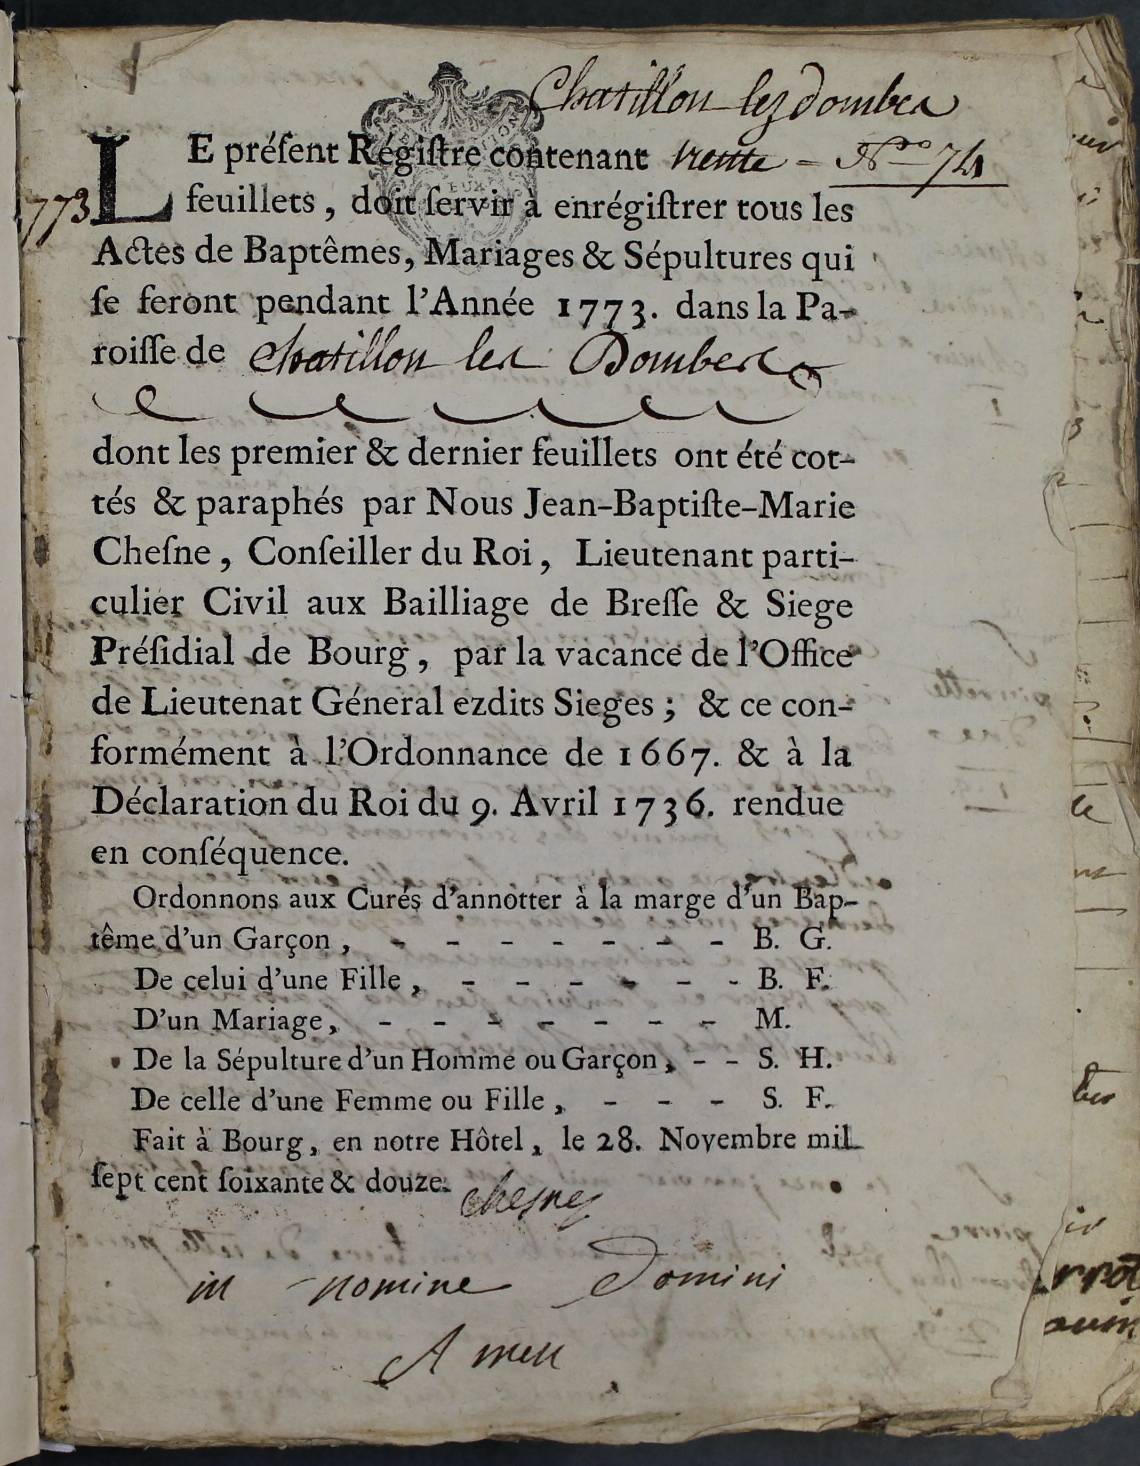 Chatillon lez dombes
LE préſent Régiſtre contenant trente = N.ro 74
1773
feuillets, doit ſervir à enrégiſtrer tous les
Actes de Baptêmes, Mariages & Sépultures qui
ſe feront pendant l'Année 1773. dans la Pa-
roiſſe de chatillon les Dombes
dont les premier & dernier feuillets ont été cot-
tés & paraphés par Nous Jean-Baptiſte-Marie
Cheſne, Conſeiller du Roi, Lieutenant parti-
culier Civil aux Bailliage de Breſſe & Siege
Préſidial de Bourg, par la vacance de l'Office
de Lieutenat Géneral ezdits Sieges; & ce con-
formément à l'Ordonnance de 1667. & à la
Déclaration du Roi du 9. Avril 1736. rendue
en conſéquence.
Ordonnons aux Curés d'annotter à la marge d'un Bap-
tême d'un Garçon, - - - - - - - B. G.
De celui d'une Fille, - - - - - - B. F.
D'un Mariage, - - - - - - - M.
De la Sépulture d'un Homme ou Garçon, - - S. H.
De celle d'une Femme ou Fille, - - - S. F.
Fait à Bourg, en notre Hôtel, le 28. Novembre mil
ſept cent ſoixante & douze.
chesne
in nomine Domini
Amen